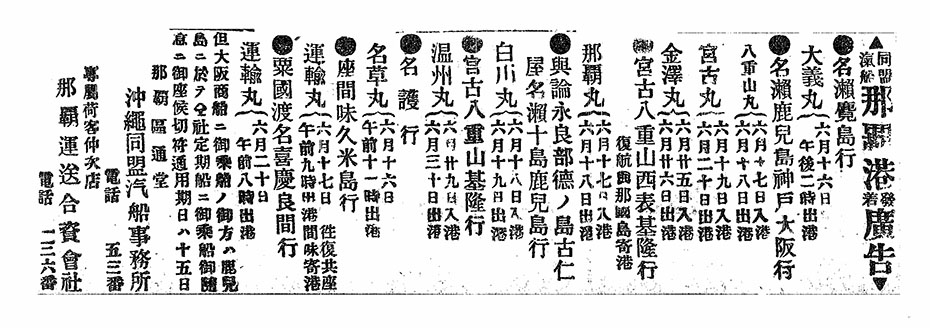 ▲同盟汽船那覇港發着廣告▼
●名瀬鹿島行
大義丸 六月十六日 午後二時出港
●名瀬鹿兒島神戸大阪行
八重山丸 六月十七日入港 六月十八日出港
宮古丸 六月十八日入港 六月二十日出港
金澤丸 六月廿五日入港 六月廿六日出港
●宮古八重山西表基隆行
復航與那國島寄港
那覇丸 六月十七日入港 六月十八日出港
●與論永良部德ノ島古仁
屋名瀬十島鹿兒島行
白川丸 六月十八日入港 六月十九日出港
●宮古八重山基隆行
温州丸 六月廿九日入港 六月三十日出港
●名護行
名草丸 六月十六日 午前十一時出港
●座間味久米島行
運輸丸 六月十七日 午前九時出港 往復共座間味寄港
●粟國渡名喜慶良間行
運輸丸 六月二十日 午前八時出港
但大阪商船ニ御乘船ノ御方ハ鹿兒
島ニ於テ仝社定期船ニ御乘船御隨
意ニ御座候切符通用期日ハ十五日
那覇區通堂
沖繩同盟汽船事務所
電話 五三番
專屬荷客仲次店
那覇運送合資會社
電話 一二六番